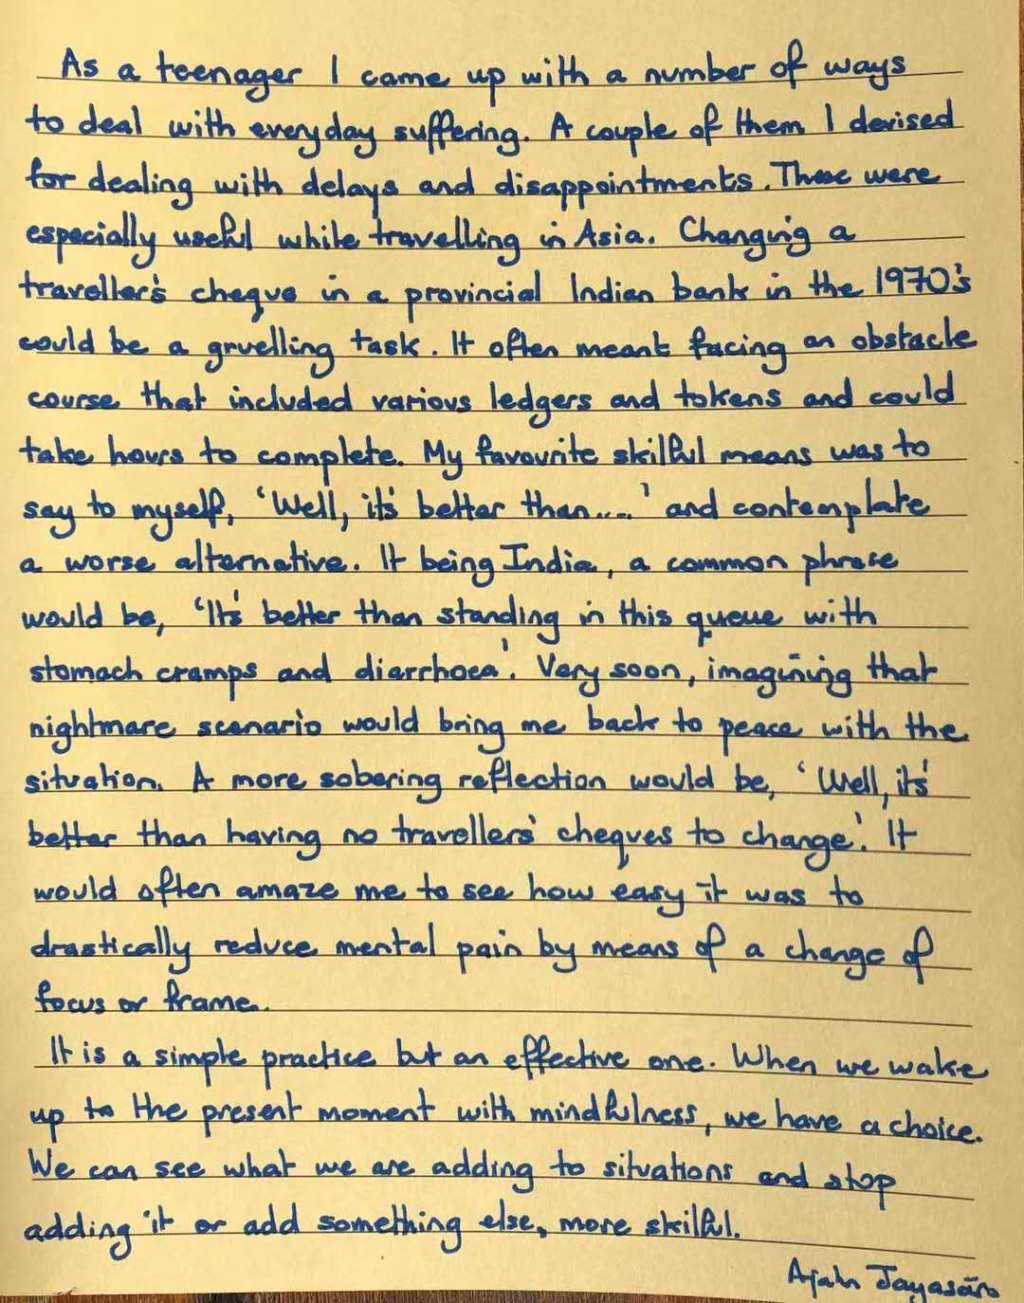 As a teenager I came up with a number of ways
to deal with everyday suffering. A couple of them I devised
for dealing with delays and disappointments. These were
especially useful while travelling in Asia. Changing a
traveller's cheque in a provincial Indian bank in the 1970's
could be a gruelling task. It often meant facing an obstacle
course that included various ledgers and tokens and could
take hours to complete. My favourite skilful means was to
say to myself, 'Well, it's better than....' and contemplate
a worse alternative. It being India, a common phrase
would be, 'It's better than standing in this queue with
stomach cramps and diarrhoea'. Very soon, imagining that
nightmare scenario would bring me back to peace with the
situation. A more sobering reflection would be, 'Well, it's
better than having no travellers' cheques to change'. It
would often amaze me to see how easy it was to
drastically reduce mental pain by means of a change of
focus or frame.
It is a simple practice but an effective one. When we wake
up to the present moment with mindfulness, we have a choice.
We can see what we are adding to situations and stop
adding it or add something else, more skilful.
Ajahn Jayasāro